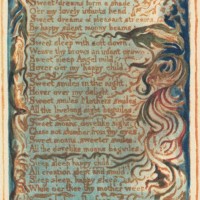 Sweet dreams form a shade
O'er my lovely infants head
Sweet dreams of pleasant streams
By happy silent moony beams
Sweet sleep with soft down
Weave thy brows an infant crown
Sweet sleep Angel mild
Hover o'er my happy child
Sweet smiles in the night
Hover over my delight
Sweet smiles Mothers smiles
All the livelong night beguiles
Sweet moans, dovelike sighs
Chase not slumber from thy eyes
Sweet moans, sweeter smiles
All the dovelike moans beguiles
Sleep sleep happy child
All creation slept and smil'd
Sleep sleep, happy sleep
While o'er thee thy mother weep